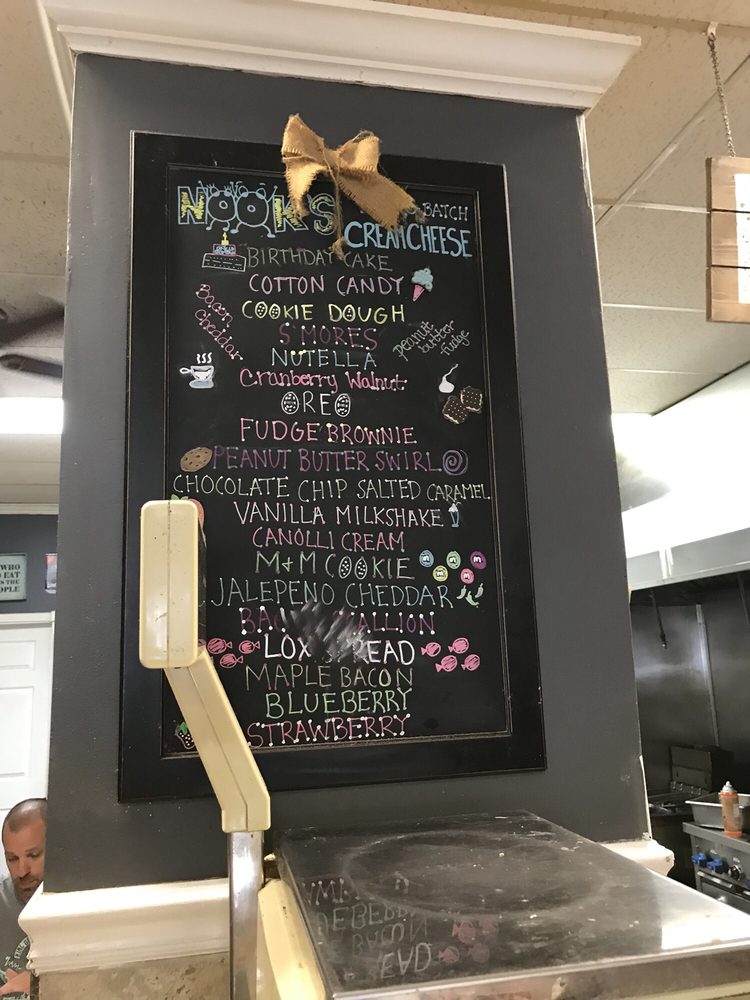 NOOK'S
BATCH
CREAM CHEESE
BIRTHDAY CAKE
COTTON CANDY
COOKIE DOUGH
Bacon
Cheddar
S'MORES
peanut
butter
fudge
NUTELLA
Cranberry Walnut
OREO
FUDGE BROWNIE
PEANUT BUTTER SWIRL
CHOCOLATE CHIP SALTED CARAMEL
VANILLA MILKSHAKE
CANOLLI CREAM
M&M COOKIE
m m m m m
JALEPENO CHEDDAR
LOX
MAPLE BACON
BLUEBERRY
STRAWBERRY
WHO
EAT